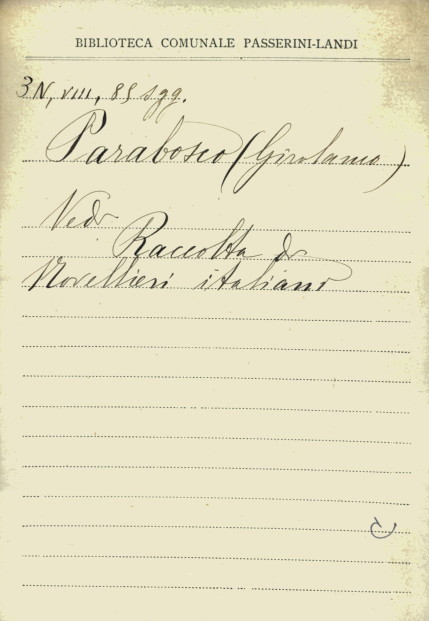 BIBLIOTECA COMUNALE PASSERINI-LANDI
3N, VIII, 85 sgg.
Parabosco (Girolamo)
Vedi
Raccolta di
Novellieri italiani